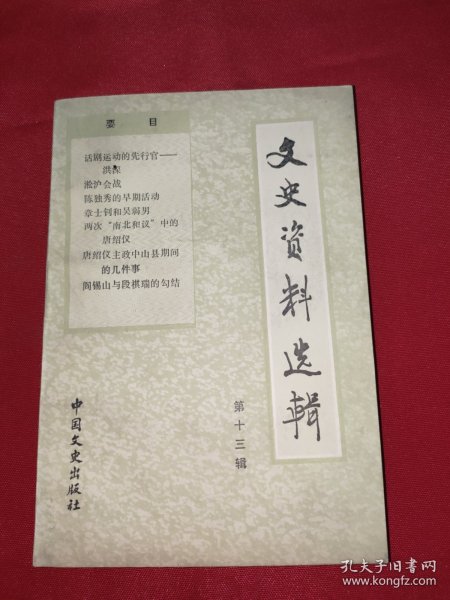 要目
话剧运动的先行官——
洪深
淞沪会战
陈独秀的早期活动
章士钊和吴弱男
两次“南北和议”中的
唐绍仪
唐绍仪主政中山县期间
的几件事
阎锡山与段祺瑞的勾结
文史资料选辑
第十三辑
中国文史出版社
孔夫子旧书网
www.kongfz.com